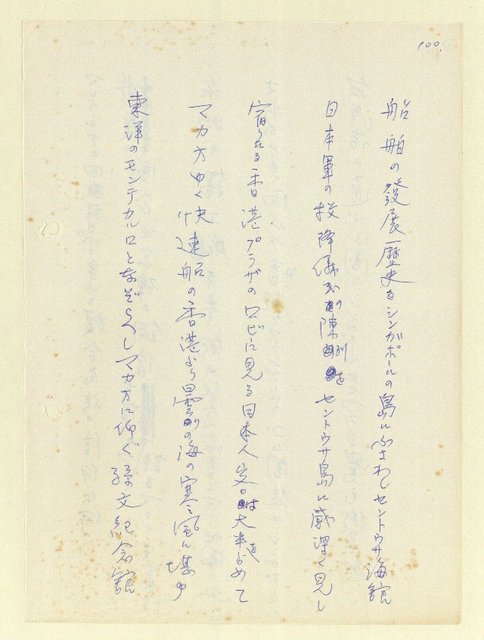 100.
船舶の發展歴史をシンガポールの島にふさわしセントウサ海館
日本軍の投降儀式の陳列をセントウサ島に感深く見し
宿りゐる香港プラザのロビに見る日本人客は大半占めて
マカオゆく快速船の香港より曇りの海の寒き風に堪ゆ
東洋のモンテカルロとなぞらへしマカオに仰ぐ孫文紀念館